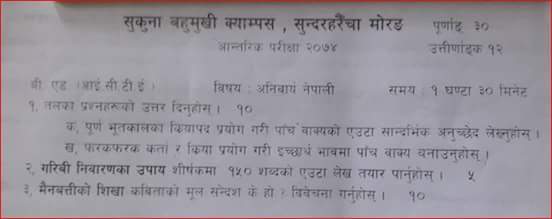 सुकुना बहुमुखी क्याम्पस , सुन्दरहरैंचा मोरङ पूर्णाङ्क ३०
आन्तरिक परीक्षा २०७४ उत्तीर्णाङ्क १२
बी. एड (आई.सी.टी.ई.) विषय : अनिवार्य नेपाली समय : १ घण्टा ३० मिनेट
१. तलका प्रश्नहरूको उत्तर दिनुहोस् । १०
क. पूर्ण भूतकालका क्रियापद प्रयोग गरी पाँच वाक्यको एउटा सान्दर्भिक अनुच्छेद लेख्नुहोस् ।
ख. फरकफरक कर्ता र क्रिया प्रयोग गरी इच्छार्थ भावमा पाँच वाक्य बनाउनुहोस् ।
२. गरिबी निवारणका उपाय शीर्षकमा १५० शब्दको एउटा लेख तयार पार्नुहोस् । ५
३. मैनबत्तीको शिखा कविताको मूल सन्देश के हो ? विवेचना गर्नुहोस् । १०